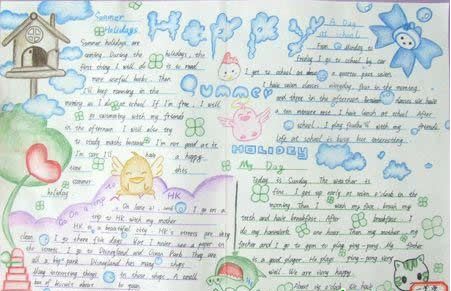 Happy
Summer
Holiday
Summer
Holidays
Summer holidays are
coming. During the holidays, the
first thing I will do is to read
more useful books. Then
I'll keep running in the
morning as I do at school. If I'm free, I will
go swimming with my friends
in the afternoon. I will also try
to study maths because I'm not good at it.
I'm sure I'll have a happy
time this
summer
holiday
Go On A Trip To HK
On June 21, and I go on a
trip to HK with my mother
HK is a beautiful city. HK's streets are very
clean. I go there five days. But I never see a paper in
the street. I go to Disneyland and Ocean Park. They are
all a big park. Disneyland has many shops
Many interesting things in these shops. A small
box of biscuits about
A Day
at school
From Monday to
Friday I go to school by car.
I get to school at about a quarter past seven.
I have seven classes everyday, four in the morning
and three in the afternoon. Between classes we have
a ten minute rest. I have lunch at school. After
school, I play with my friends.
Life at school is busy but interesting.
My Day
Today is Sunday. The weather is
fine. I get up early at seven o'clock in the
morning. Then I wash my face, brush my
teeth and have breakfast. After breakfast I
do my homework one hour. Then my mother, my
father and I go to gym to play ping-pong. My father
is a good player. He plays ping-pong very
well. We are very happy.
About six o'clock. We have